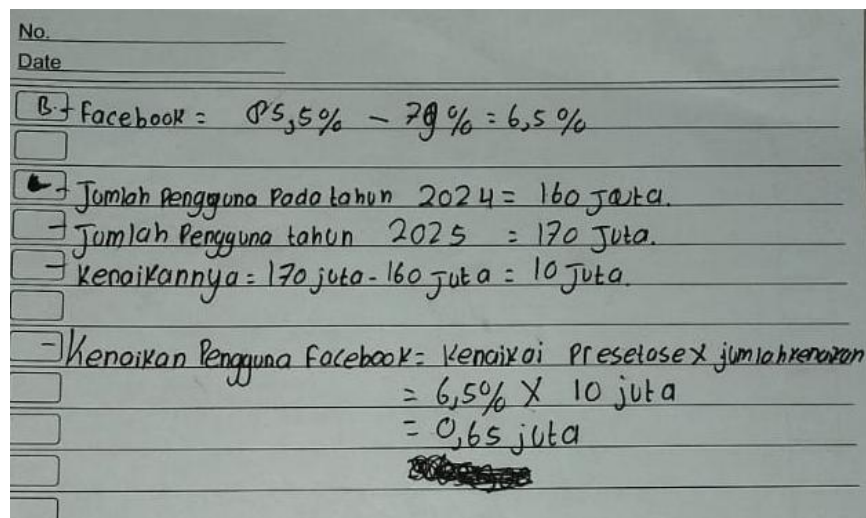 No.
Date
B. + Facebook = 85,5% - 79% = 6,5%
- Jumlah Pengguna Pada tahun 2024 = 160 Juta.
- Jumlah Pengguna tahun 2025 = 170 Juta.
- Kenaikannya = 170 juta - 160 Juta = 10 Juta.
- Kenaikan Pengguna Facebook = Kenaikai Presetase X jumlah kenaikan
= 6,5% X 10 juta
= 0,65 juta